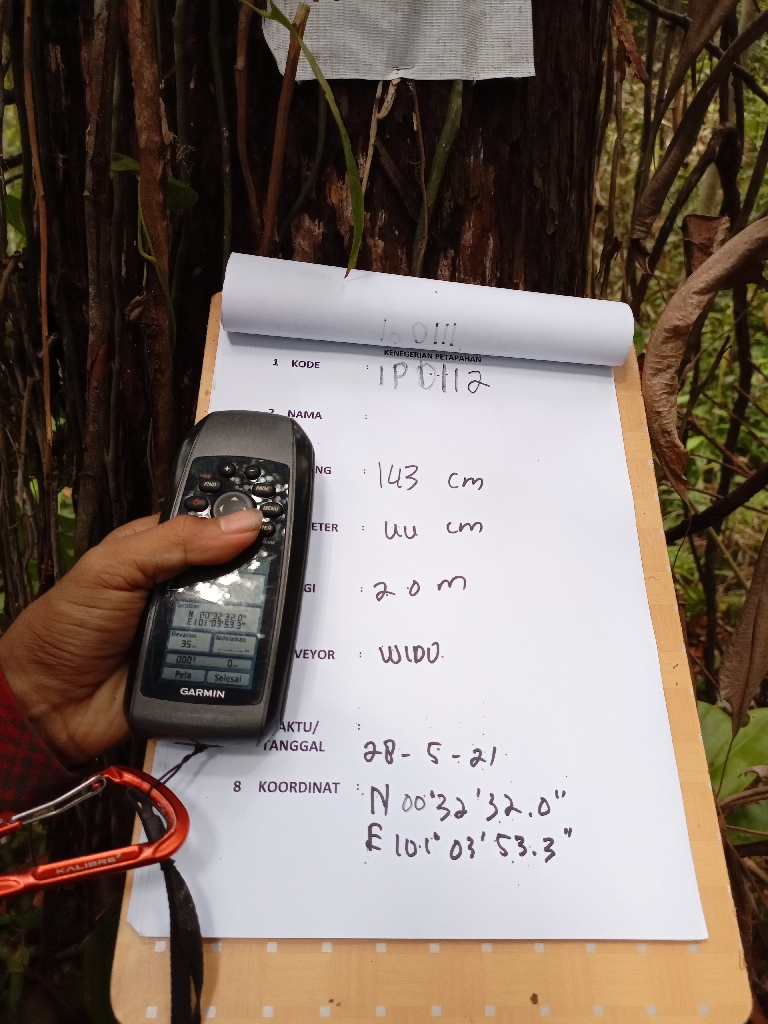 10111
KENEGERIAN PETAPAHAN
1 KODE : IP0112
2 NAMA :
NG : 143 cm
ETER : 44 cm
GI : 20 m
VEYOR : WIDO.
AKTU/ :
TANGGAL 28-5-21
8 KOORDINAT : N 00°32'32.0"
E 101° 03' 53.3"
FIND
MENU
Location
N 00°32'32.0"
E101°03'53.3"
Elevation
35
000°
0
Peta Selesai
GARMIN
KALIBRE